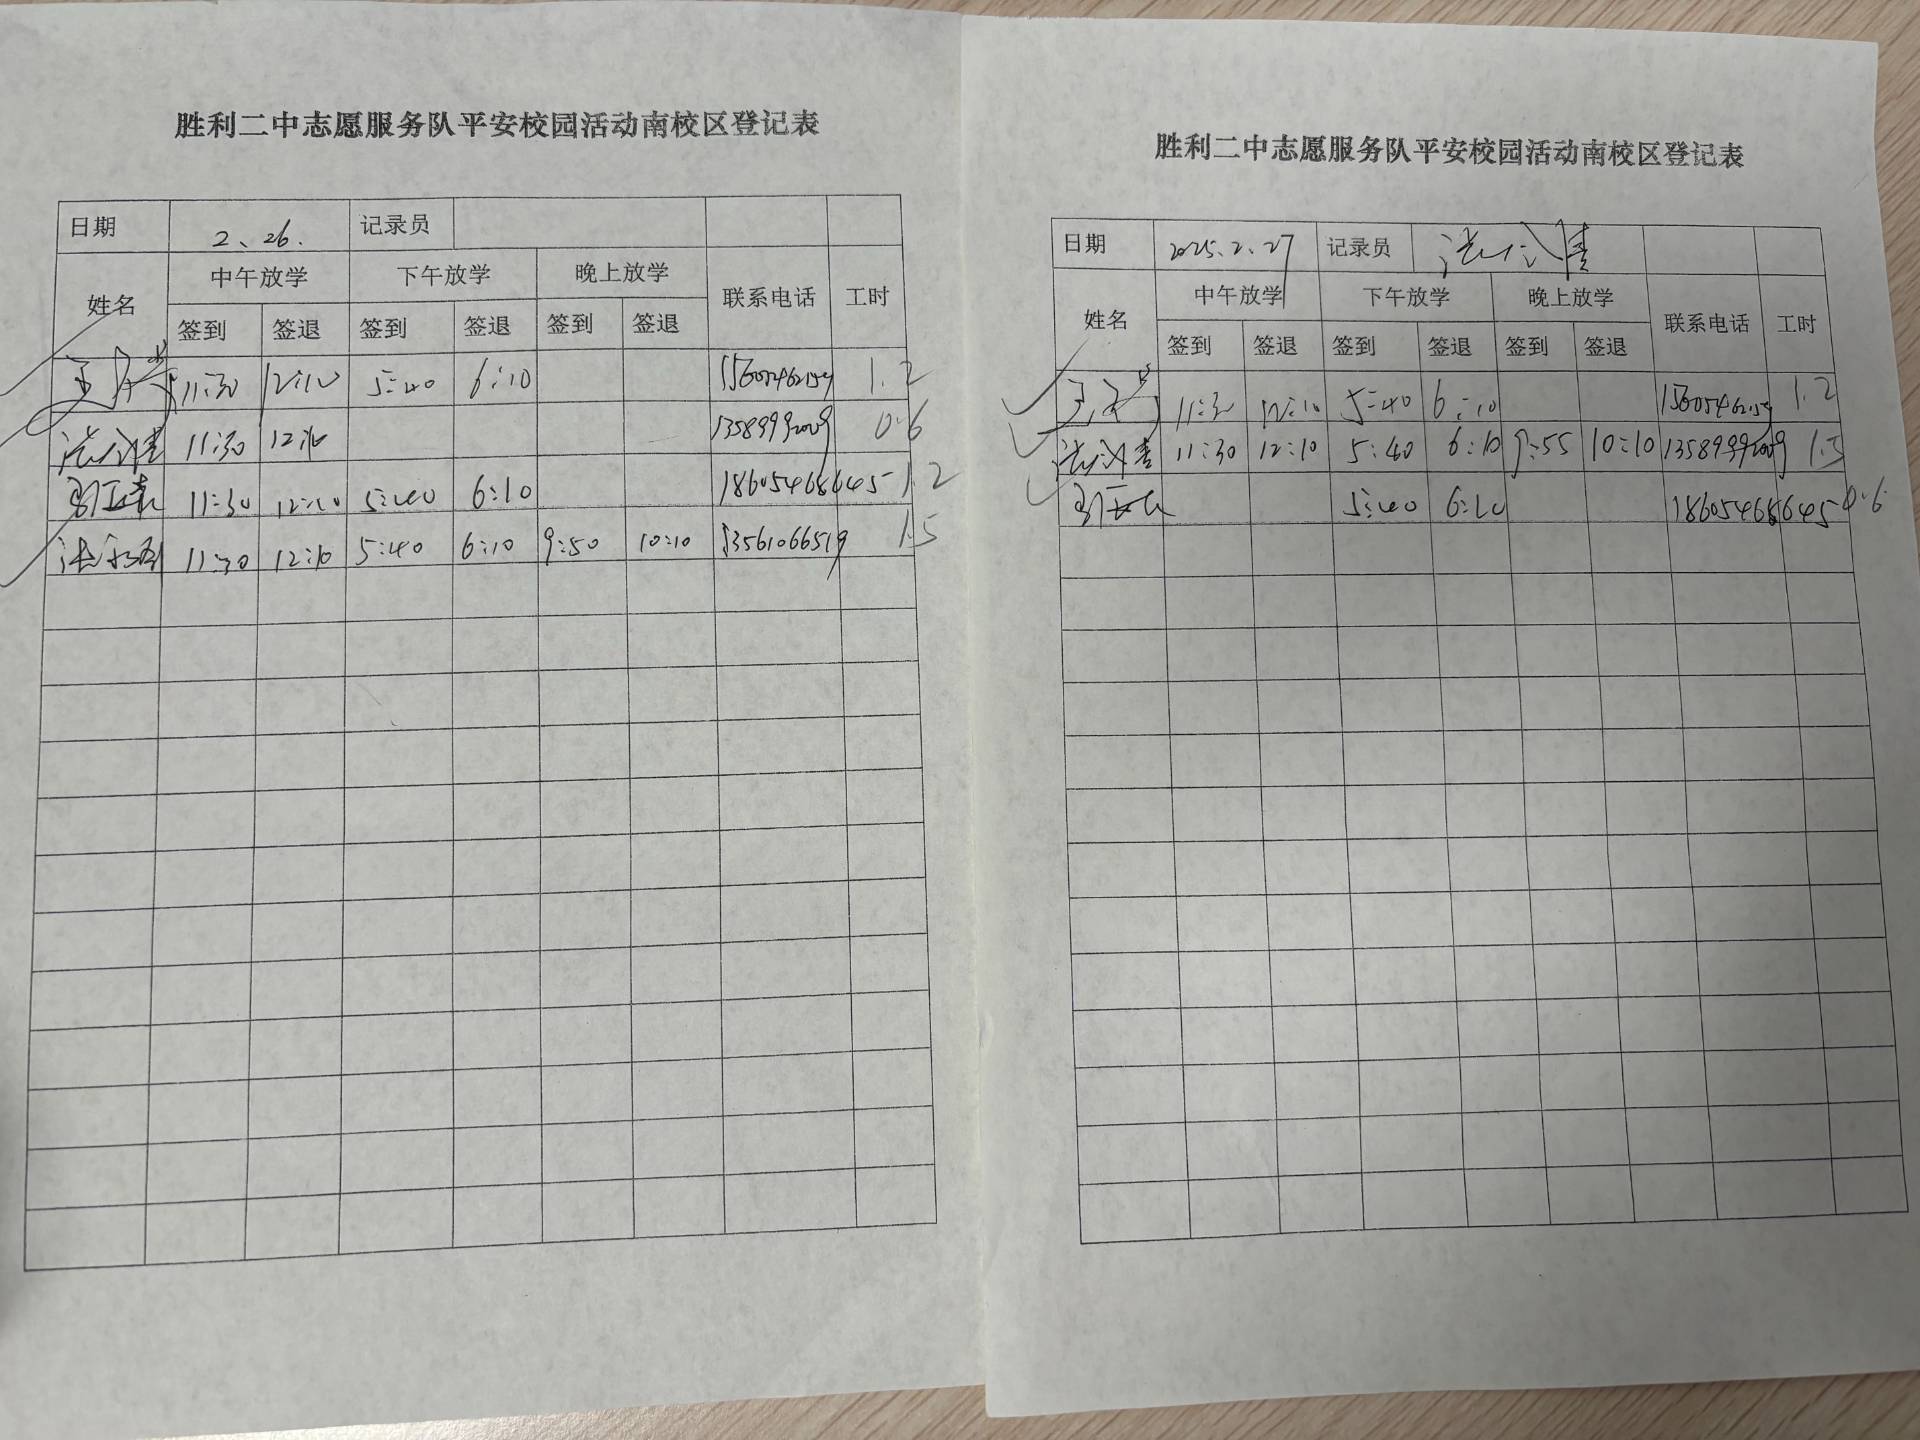 胜利二中志愿服务队平安校园活动南校区登记表
日期 2、26. 记录员
姓名 中午放学 下午放学 晚上放学 联系电话 工时
签到 签退 签到 签退 签到 签退
11:30 12:10 5:40 6:10 1.2
11:30 12:10 13589992009 0.6
11:30 12:10 5:40 6:10 18605468645 1.2
11:30 12:10 5:40 6:10 9:50 10:10 13561066519 1.5
胜利二中志愿服务队平安校园活动南校区登记表
日期 2025.2.27 记录员
姓名 中午放学 下午放学 晚上放学 联系电话 工时
签到 签退 签到 签退 签到 签退
11:30 12:10 5:40 6:10 1.2
11:30 12:10 5:40 6:10 9:55 10:10 13589992009 1.5
5:40 6:10 18605468645 0.6